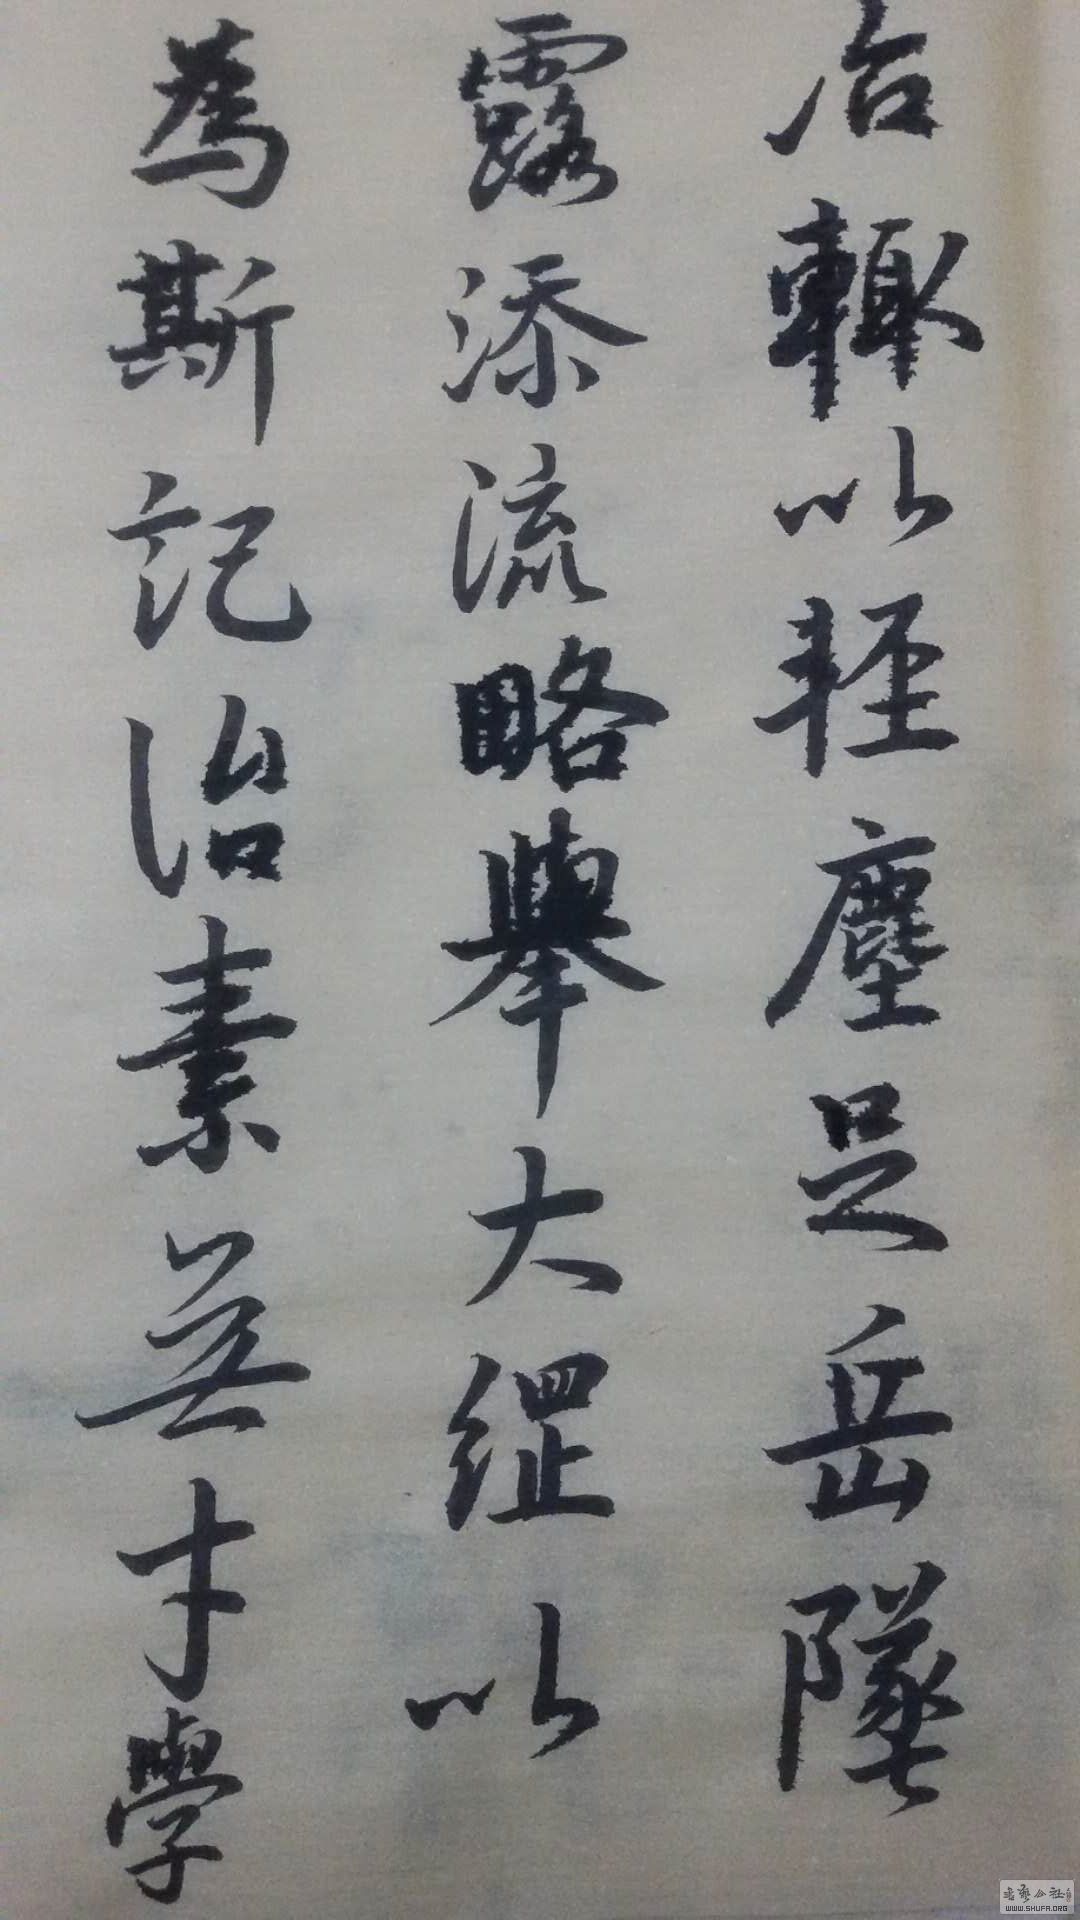 治輒以輕塵足岳墜
露添流略舉大綱以
為斯記治素無才學
WWW.SHUFA.ORG